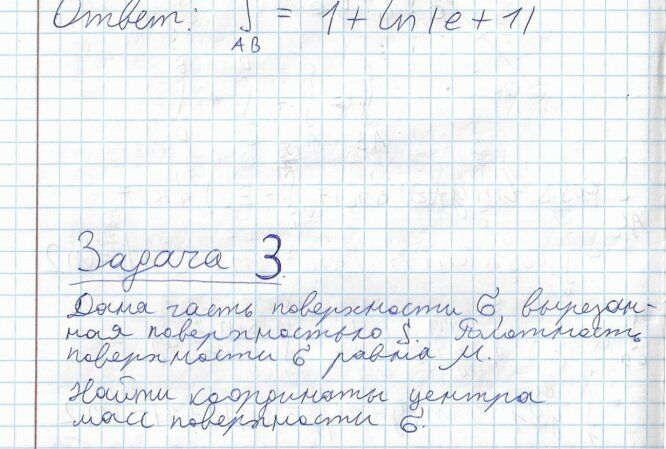 Ответ: ∫ = 1 + ln |e + 1|
AB
Задача 3.
Дана часть поверхности σ, вырезан-
ная поверхностью S. Плотность
поверхности σ равна μ.
Найти координаты центра
масс поверхности σ.